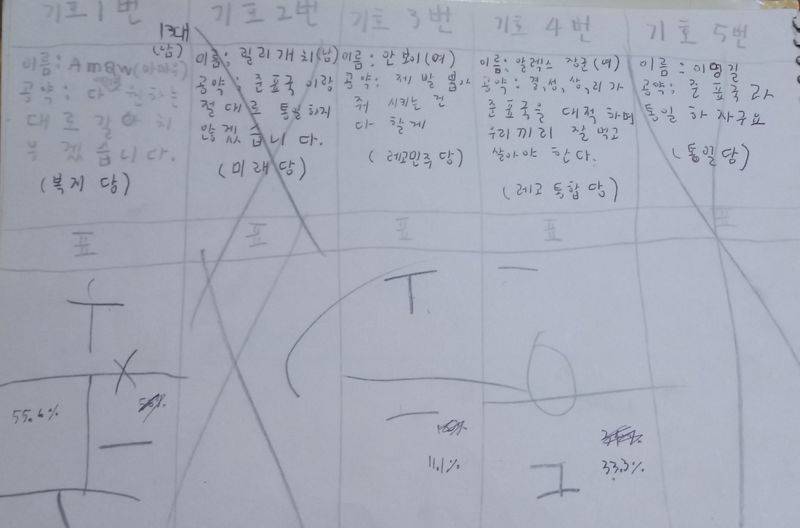 기호 1번
이름: AmQw(아마)
공약: 다 원하는
대로 갈아 치
부 겠습니다.
(복지 당)
표
55.6%
13대
(남)
기호 2번
이름: 릴리개치(남)
공약: 준표국 이랑
절대로 통일하지
않겠습니다.
(미래당)
표
기호 3번
이름: 안보이(여)
공약: 제발 뽑아
줘 시키는 건
다 할게
(레고민주당)
표
11.1%
기호 4번
이름: 알렉스 장군(여)
공약: 결,성,상,리가
준표국을 대적하며
우리끼리 잘 먹고
살아야 한다.
(레고 통합당)
표
33.3%
기호 5번
이름: 이명길
공약: 준표국과
통일 하자구요
(통일당)
표